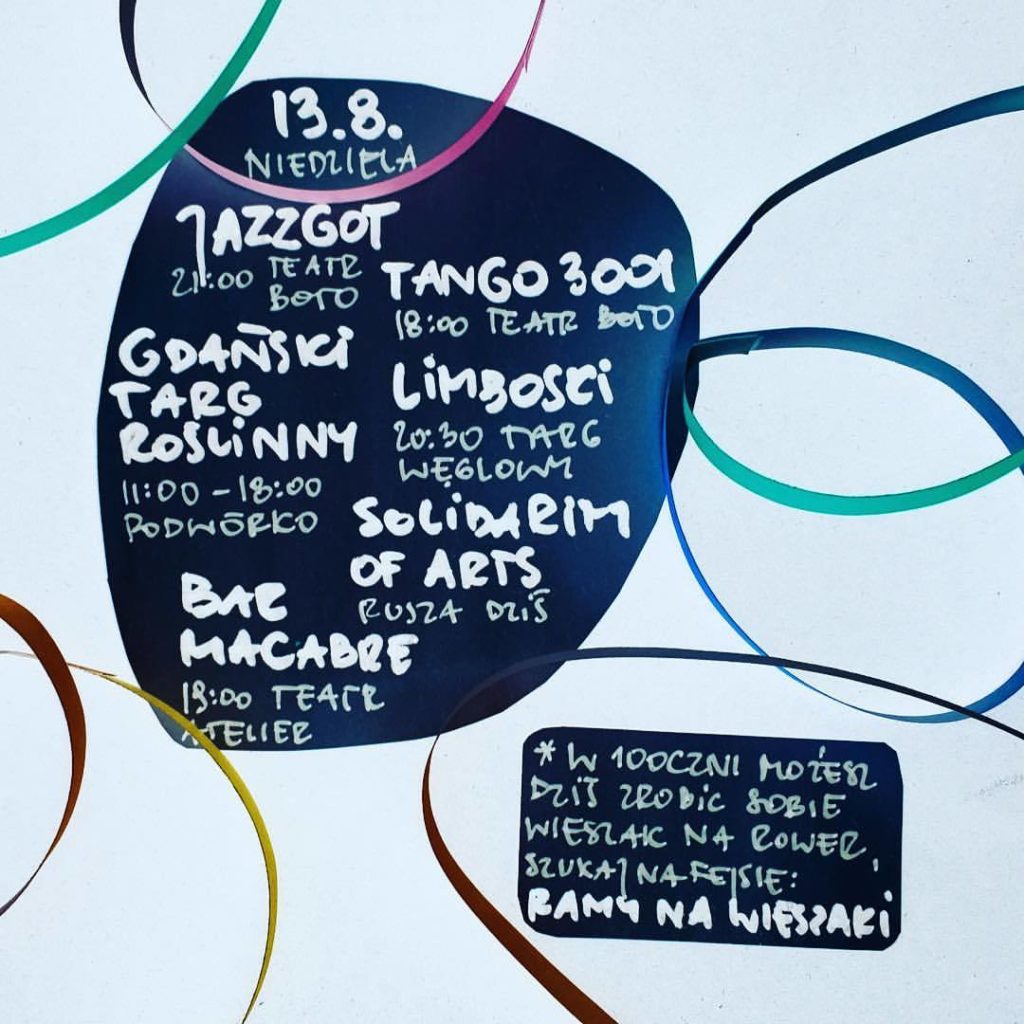 13.8.
NIEDZIELA
JAZZGOT
21:00 TEATR
BOTO
GDAŃSKI
TARG
ROŚLINNY
11:00 - 18:00
PODWÓRKO
BAR
MACABRE
19:00 TEATR
ATELIER
TANGO 3001
18:00 TEATR BOTO
LIMBOSKI
20:30 TARG
WĘGLOWY
SOLIDARIM
OF ARTS
RUSZA DZIŚ
* W 100CZNI MOŻESZ
DZIŚ ZROBIC SOBIE
WIESZAK NA ROWER,
SZUKAJ NA FEJSIE:
RAMY NA WIESZAKI